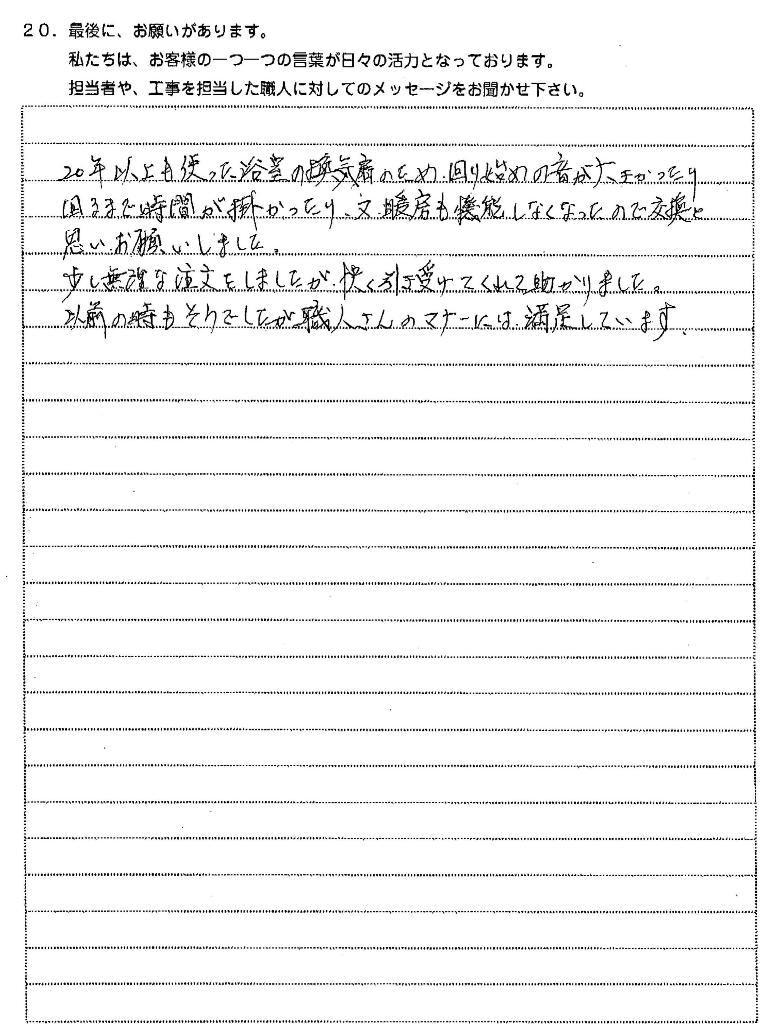 20．最後に、お願いがあります。
私たちは、お客様の一つ一つの言葉が日々の活力となっております。
担当者や、工事を担当した職人に対してのメッセージをお聞かせ下さい。
20年以上も使った浴室の換気扇のため、回り始めの音が大きかったり
回るまで時間が掛かったり、又、暖房も機能しなくなったので交換と
思いお願いしました。
少し無理な注文をしましたが、快く引き受けてくれて助かりました。
以前の時もそうでしたが職人さんのマナーには、満足しています。